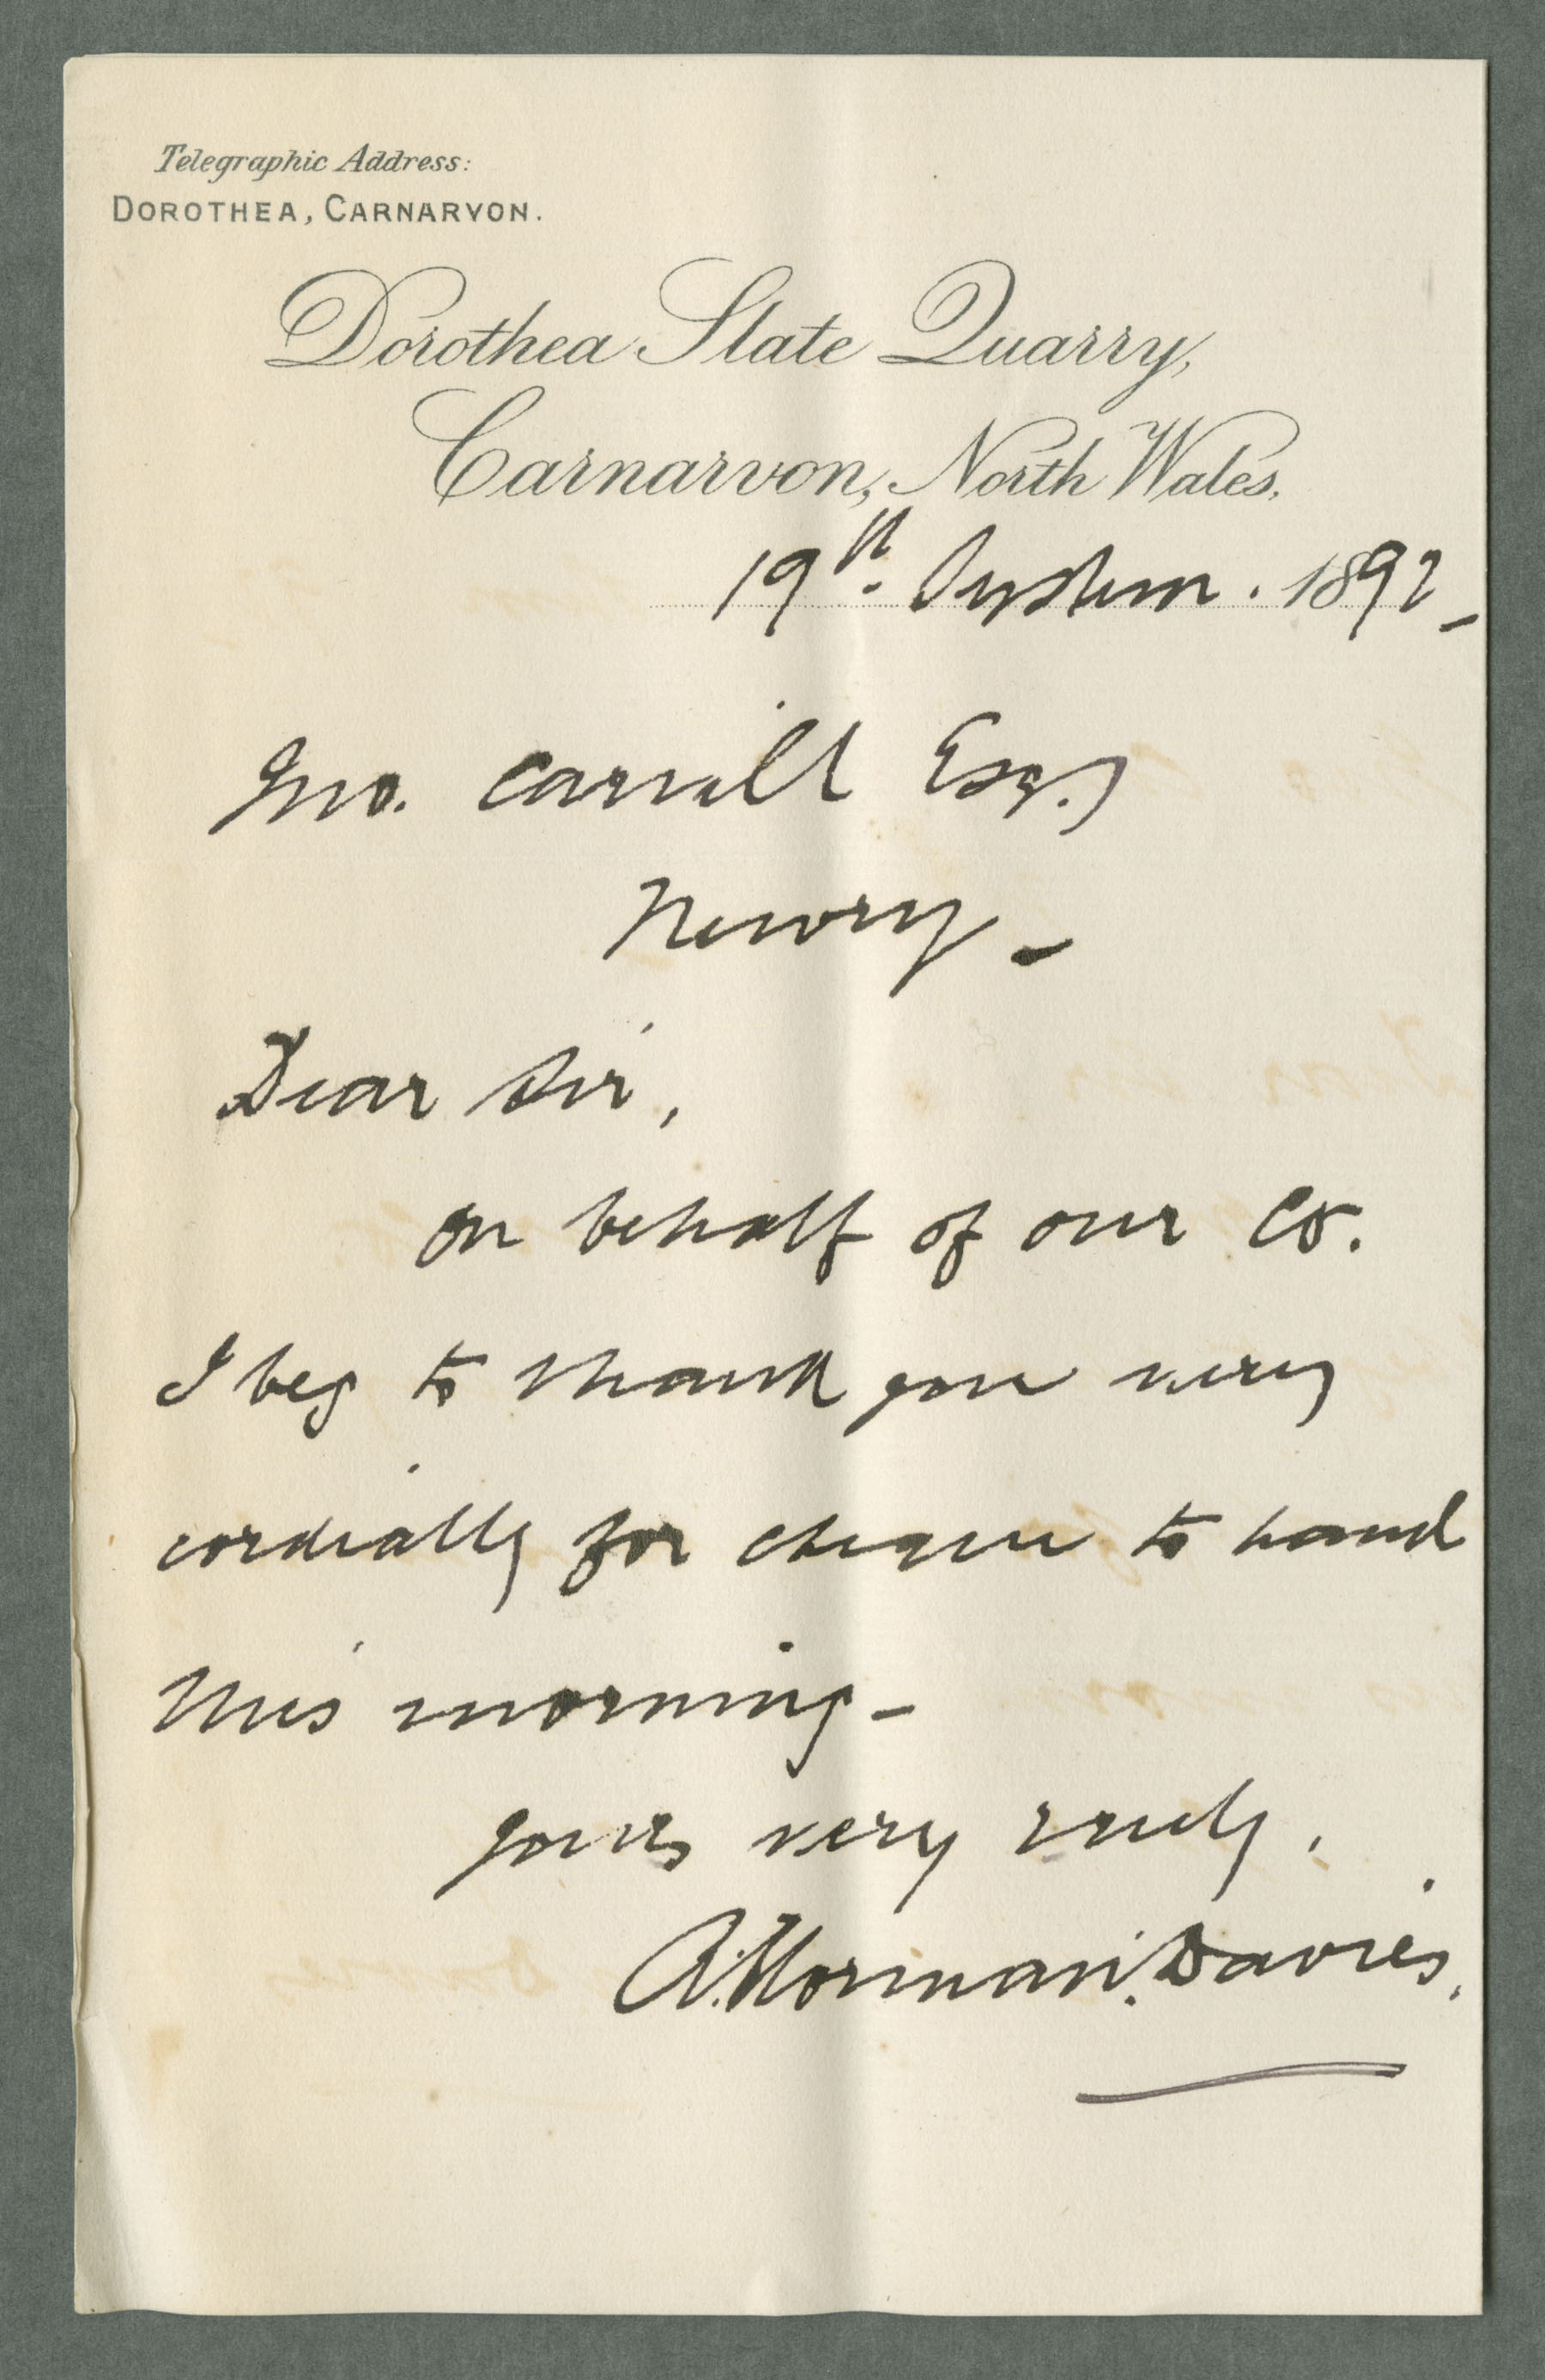 Telegraphic Address:
DOROTHEA, CARNARVON.
Dorothea Slate Quarry,
Carnarvon, North Wales.
19th. Septem. 1892_
Jno. Carvill Esq.
Newry _
Dear Sir,
On behalf of our Co.
I beg to thank you very
cordially for cheque to hand
this morning _
Yours very truly,
Norman Davies.